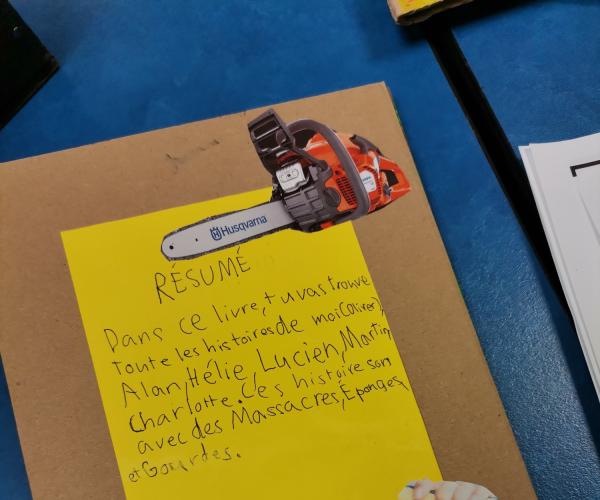 Husqvarna
RÉSUMÉ
Dans ce livre, tu vas trouve
toute les histoires de moi (Oliver),
Alan, Hélie, Lucien, Martin,
Charlotte. Ces histoire son
avec des Massacres, Éponges
et Gourdes.